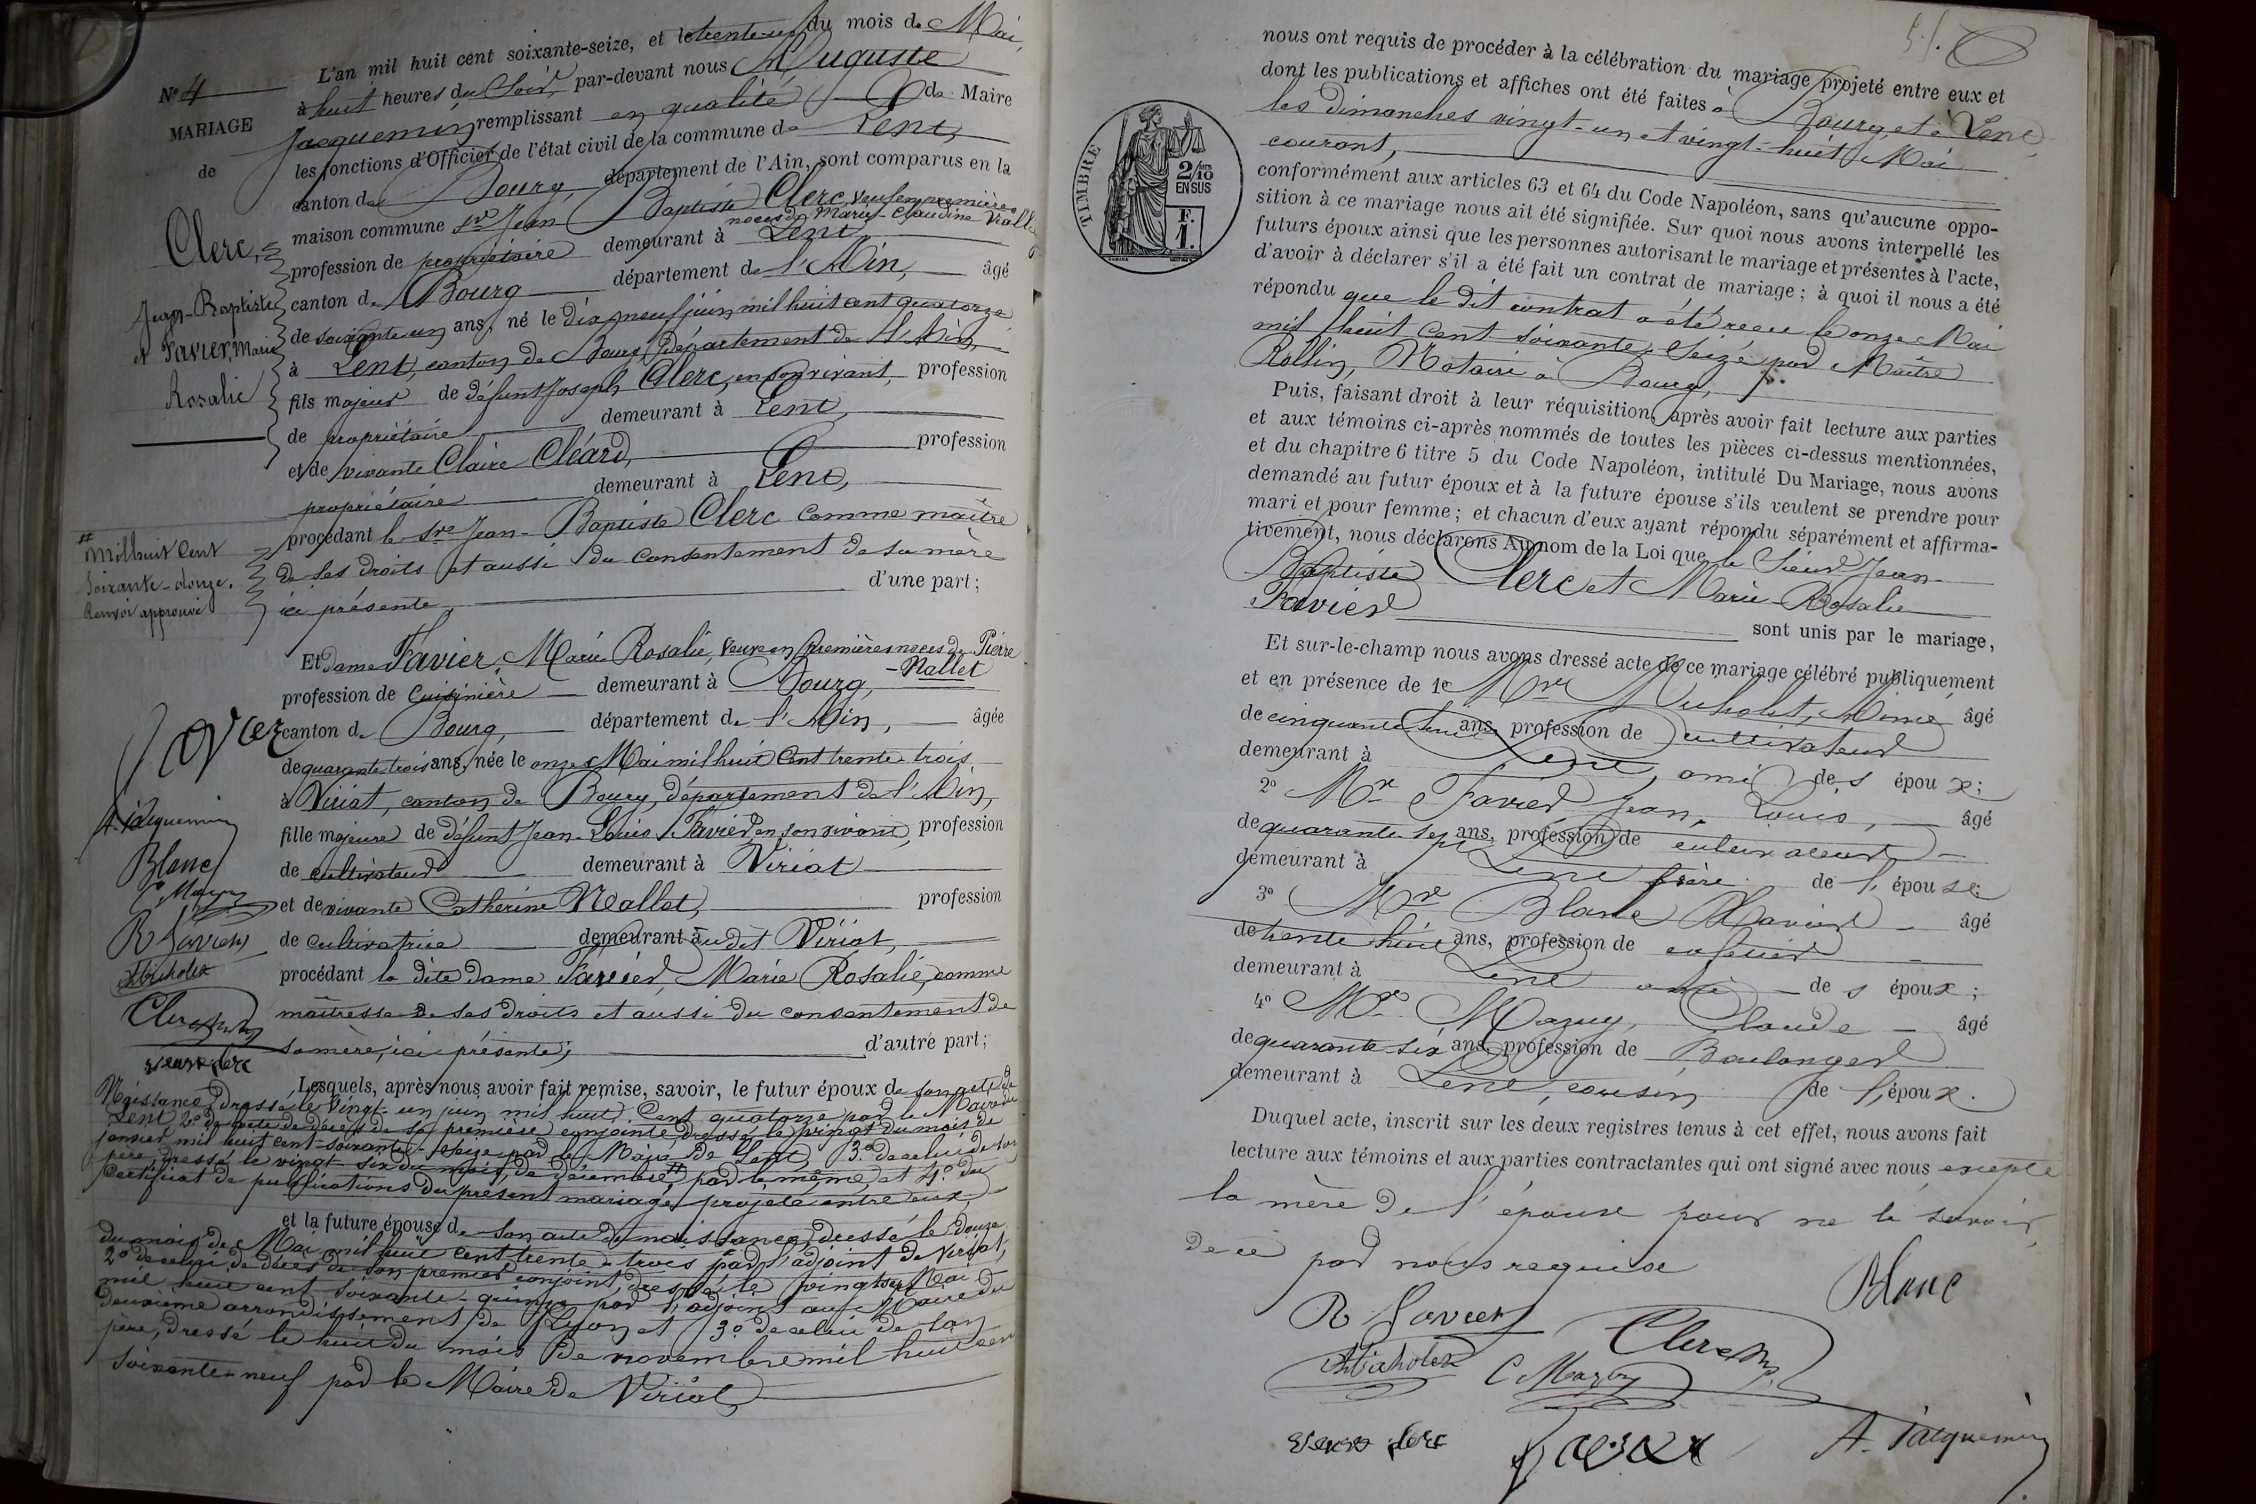 N° 4
MARIAGE
de
Clerc,
Jean-Baptiste
et Favier, Marie
Rosalie
L'an mil huit cent soixante-seize, et le trente-un du mois de Mai,
à huit heures du Soir, par-devant nous Auguste
Jacquemin remplissant en qualité de Maire
les fonctions d'Officier de l'état civil de la commune de Lent,
canton de Bourg, département de l'Ain, sont comparus en la
maison commune Sr Jean Baptiste Clerc, veuf en premières
noces de Marie-Claudine
profession de propriétaire demeurant à Lent,
canton de Bourg département de l'Ain, âgé
de soixante-un ans, né le dix neuf juin mil huit cent quatorze
à Lent, canton de Bourg, département de l'Ain,
fils majeur de défunt Joseph Clerc, en son vivant, profession
de propriétaire demeurant à Lent,
et de vivante Claire Cléard, profession
propriétaire demeurant à Lent,
procédant le Sr Jean-Baptiste Clerc comme maître
de ses droits et aussi du consentement de sa mère
ici présente, d'une part;
# Mil huit Cent
soixante-douze.
Renvoi approuvé
Et dame Favier, Marie Rosalie, veuve en premières noces de Pierre
-Nallet
profession de cuisinière demeurant à Bourg,
canton de Bourg, département de l'Ain, âgée
de quarante-trois ans, née le onze Mai mil huit cent trente-trois
à Viriat, canton de Bourg, département de l'Ain,
fille majeure de défunt Jean-Louis Favier en son vivant, profession
de cultivateur demeurant à Viriat
et de vivante Catherine Nallet, profession
de cultivatrice demeurant au dit Viriat,
procédant la dite dame Favier, Marie Rosalie, comme
maîtresse de ses droits et aussi du consentement de
sa mère, ici présente; d'autre part;
Favier
A. Jacquemin
Blanc
C. Mazuy
R Favier
Clerc
veuve clerc
Lesquels, après nous avoir fait remise, savoir, le futur époux de son acte de
Naissance, dressé le vingt-un juin mil huit Cent quatorze par le Maire de
Lent, 2° de l'acte de décès de sa première conjointe, dressé le vingt du mois de
janvier mil huit cent-soixante-seize par le Maire de Lent, 3° de celui de son
père, dressé le vingt-six du mois de décembre # par le même, et 4° du
Certificat de publications du présent mariage projeté entre eux
et la future épouse de son acte de naissance, dressé le douze
du mois de Mai mil huit cent trente-trois par l'adjoint de Viriat,
2° de celui de décès de son premier conjoint, dressé le vingt Mai
mil huit cent soixante-quinze par l'adjoint au Maire du
deuxième arrondissement de Lyon et 3° de celui de son
père, dressé le huit du mois de novembre mil huit cent
soixante-neuf par le Maire de Viriat,
nous ont requis de procéder à la célébration du mariage projeté entre eux et
dont les publications et affiches ont été faites à Bourg, et à Lent,
les dimanches vingt-un et vingt-huit Mai
courant,
conformément aux articles 63 et 64 du Code Napoléon, sans qu'aucune oppo-
sition à ce mariage nous ait été signifiée. Sur quoi nous avons interpellé les
futurs époux ainsi que les personnes autorisant le mariage et présentes à l'acte,
d'avoir à déclarer s'il a été fait un contrat de mariage; à quoi il nous a été
répondu que le dit contrat a été reçu le onze Mai
mil huit cent soixante-seize par Maître
Rollin, Notaire à Bourg,
TIMBRE
2/10
EN SUS
F.
1.
Puis, faisant droit à leur réquisition, après avoir fait lecture aux parties
et aux témoins ci-après nommés de toutes les pièces ci-dessus mentionnées,
et du chapitre 6 titre 5 du Code Napoléon, intitulé Du Mariage, nous avons
demandé au futur époux et à la future épouse s'ils veulent se prendre pour
mari et pour femme; et chacun d'eux ayant répondu séparément et affirma-
tivement, nous déclarons Au nom de la Loi que le Sieur Jean-
Baptiste Clerc et Marie-Rosalie
Favier
sont unis par le mariage,
Et sur-le-champ nous avons dressé acte de ce mariage célébré publiquement
et en présence de 1° Mr Aimé âgé
de cinquante ans, profession de cultivateur
demeurant à Lent, ami des époux;
2° Mr Favier Jean, Louis, âgé
de quarante sept ans, profession de cultivateur
demeurant à Lent frère de l'épouse;
3° Mr Blanc Xavier âgé
de trente huit ans, profession de
demeurant à Lent ami des époux;
4° Mr Mazuy, Claude âgé
de quarante-six ans, profession de Boulanger
demeurant à Lent, cousin de l'époux.
Duquel acte, inscrit sur les deux registres tenus à cet effet, nous avons fait
lecture aux témoins et aux parties contractantes qui ont signé avec nous excepté
la mère de l'épouse pour ne le savoir,
de ce par nous requise
Blanc
R Favier
Clerc
C Mazuy
veuve clerc
Favier
A. Jacquemin